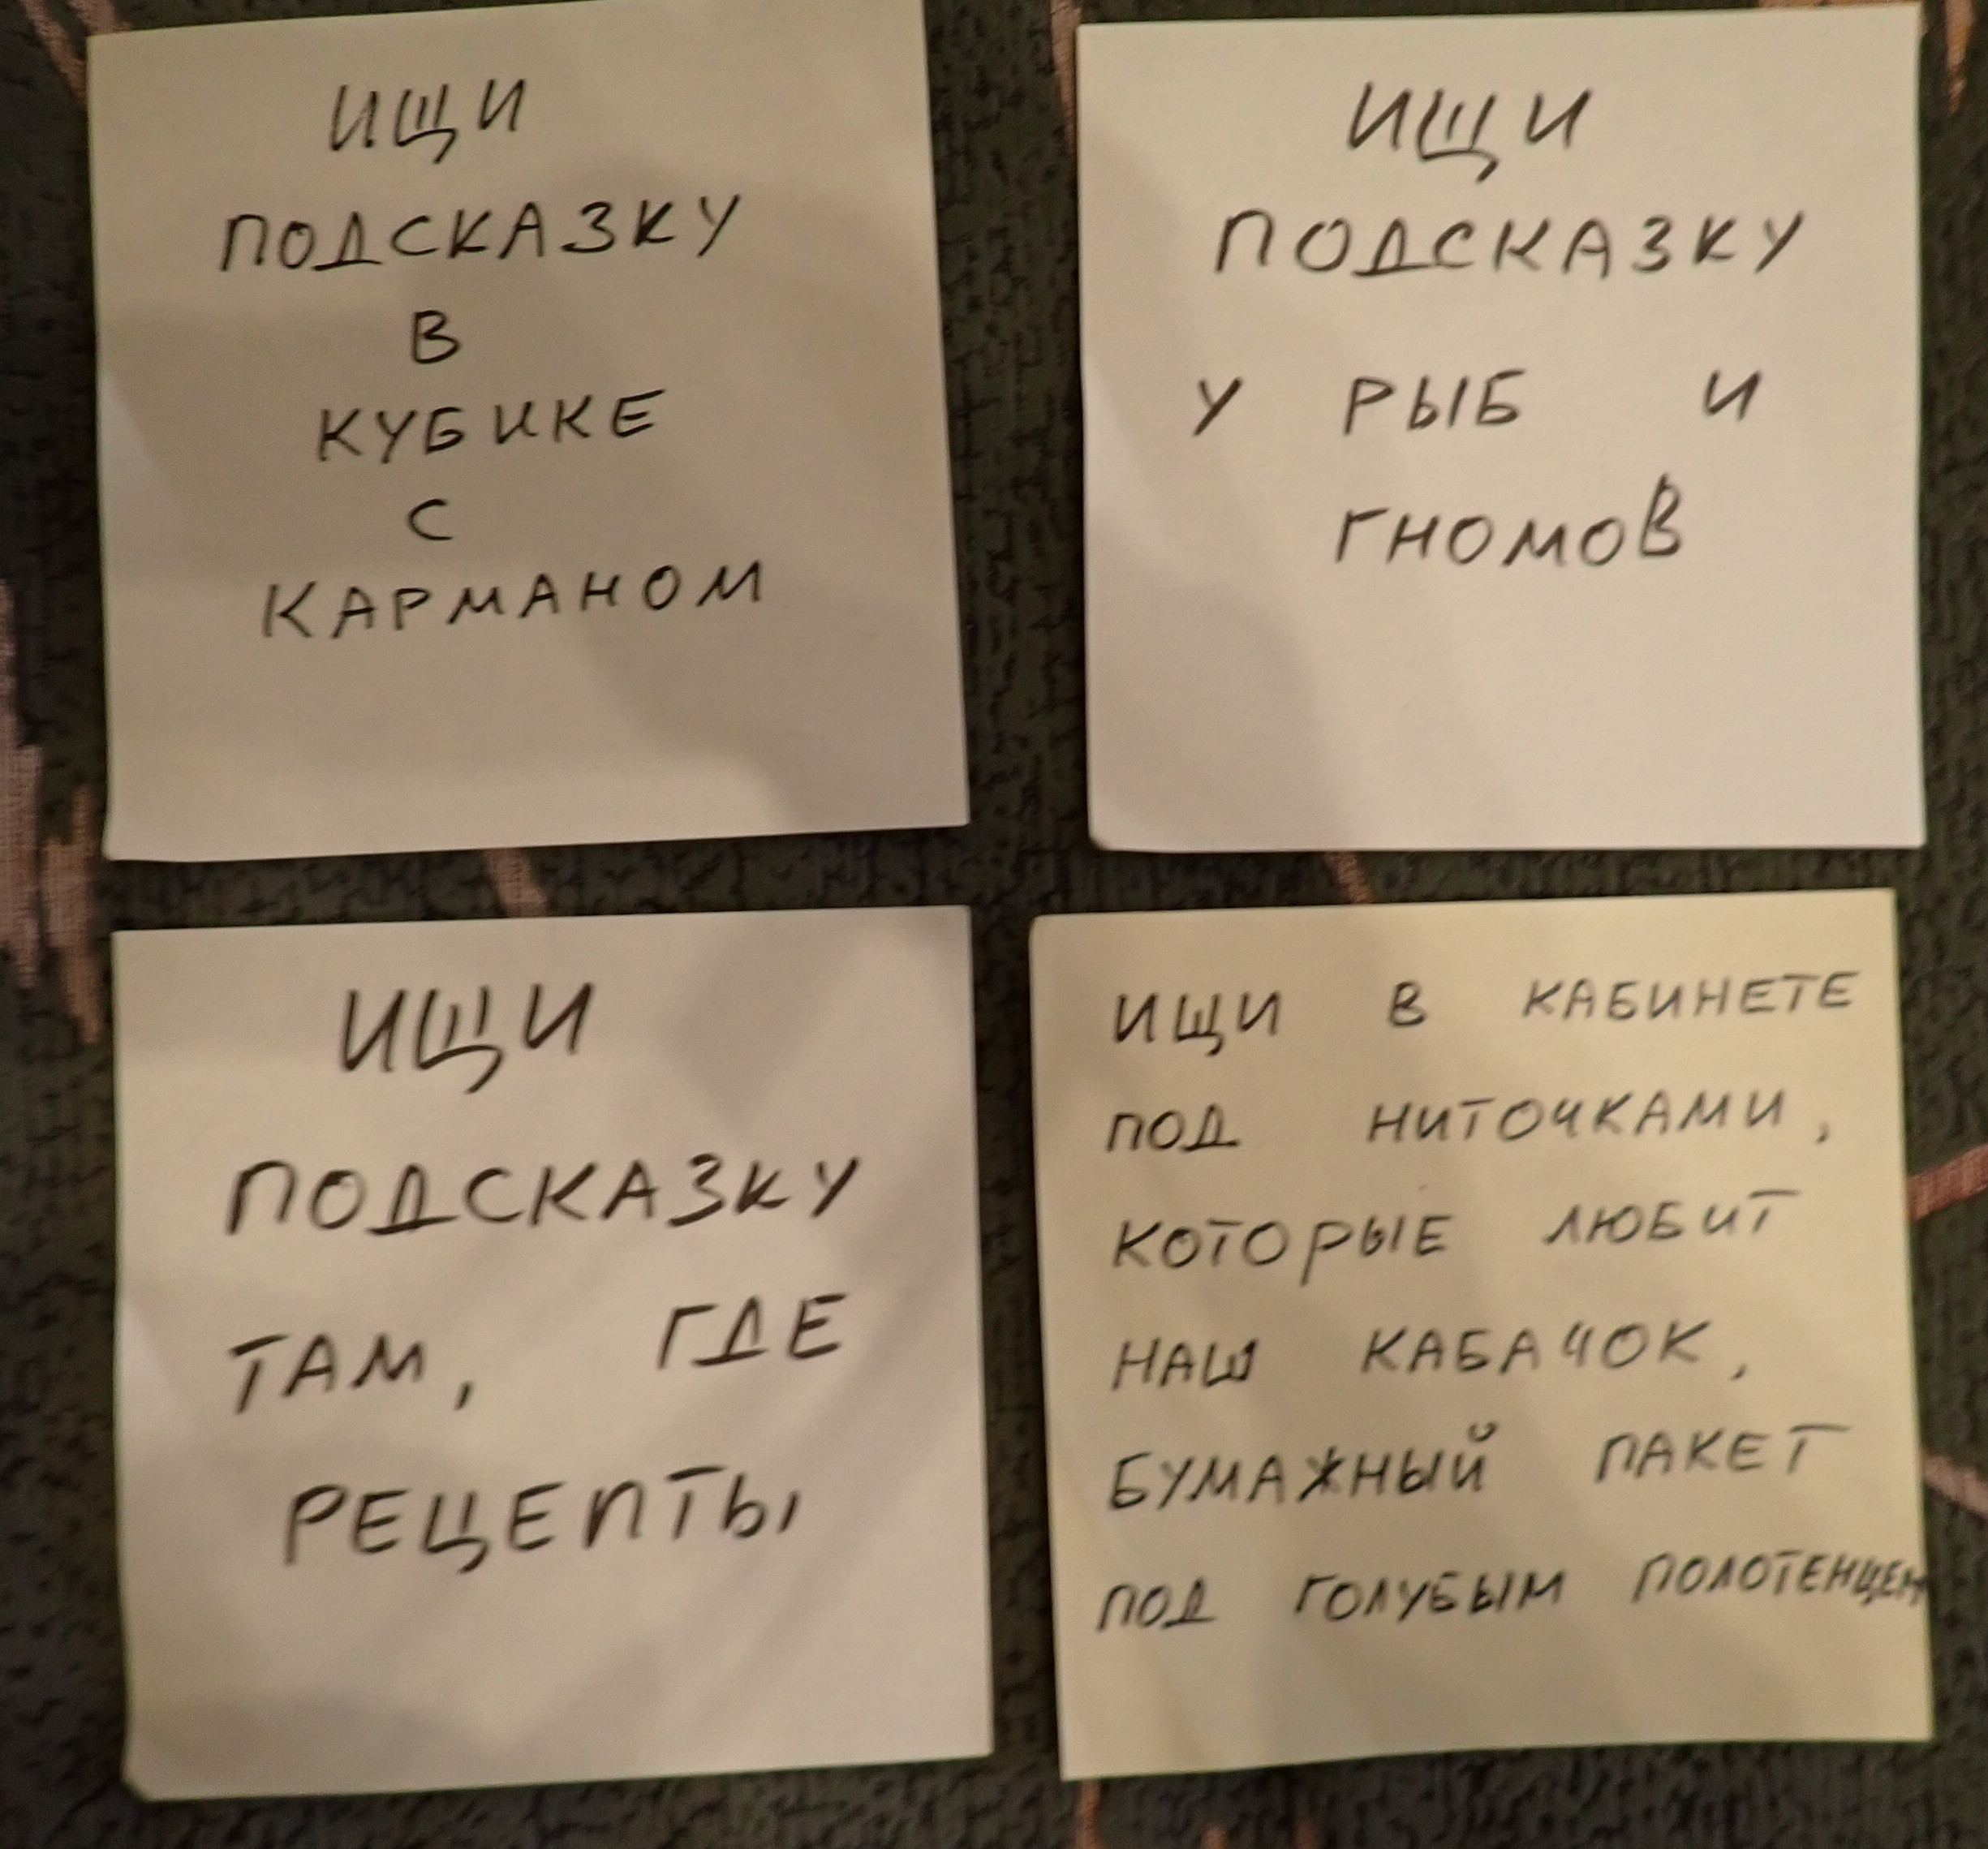 ИЩИ
ПОДСКАЗКУ
В
КУБИКЕ
С
КАРМАНОМ
ИЩИ
ПОДСКАЗКУ
У РЫБ И
ГНОМОВ
ИЩИ
ПОДСКАЗКУ
ТАМ, ГДЕ
РЕЦЕПТЫ
ИЩИ В КАБИНЕТЕ
ПОД НИТОЧКАМИ,
КОТОРЫЕ ЛЮБИТ
НАШ КАБАЧОК,
БУМАЖНЫЙ ПАКЕТ
ПОД ГОЛУБЫМ ПОЛОТЕНЦЕМ